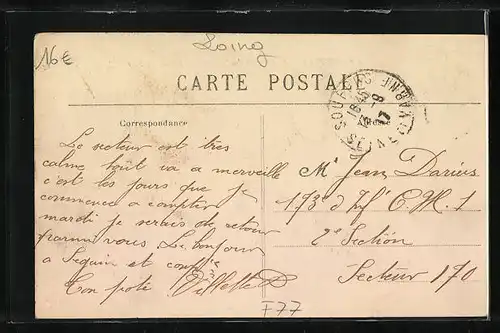 16€
Loing
CARTE POSTALE
Correspondance
Le secteur est très
calme tout va a merveille
c'est les jours que je
commence a compter
mardi je serais de retour
parmi vous. Le bonjour
a Seguin et
Ton poto Villette
Mr Jean Darius
173e d'If C.M.1
2e Section
Secteur 170
F77